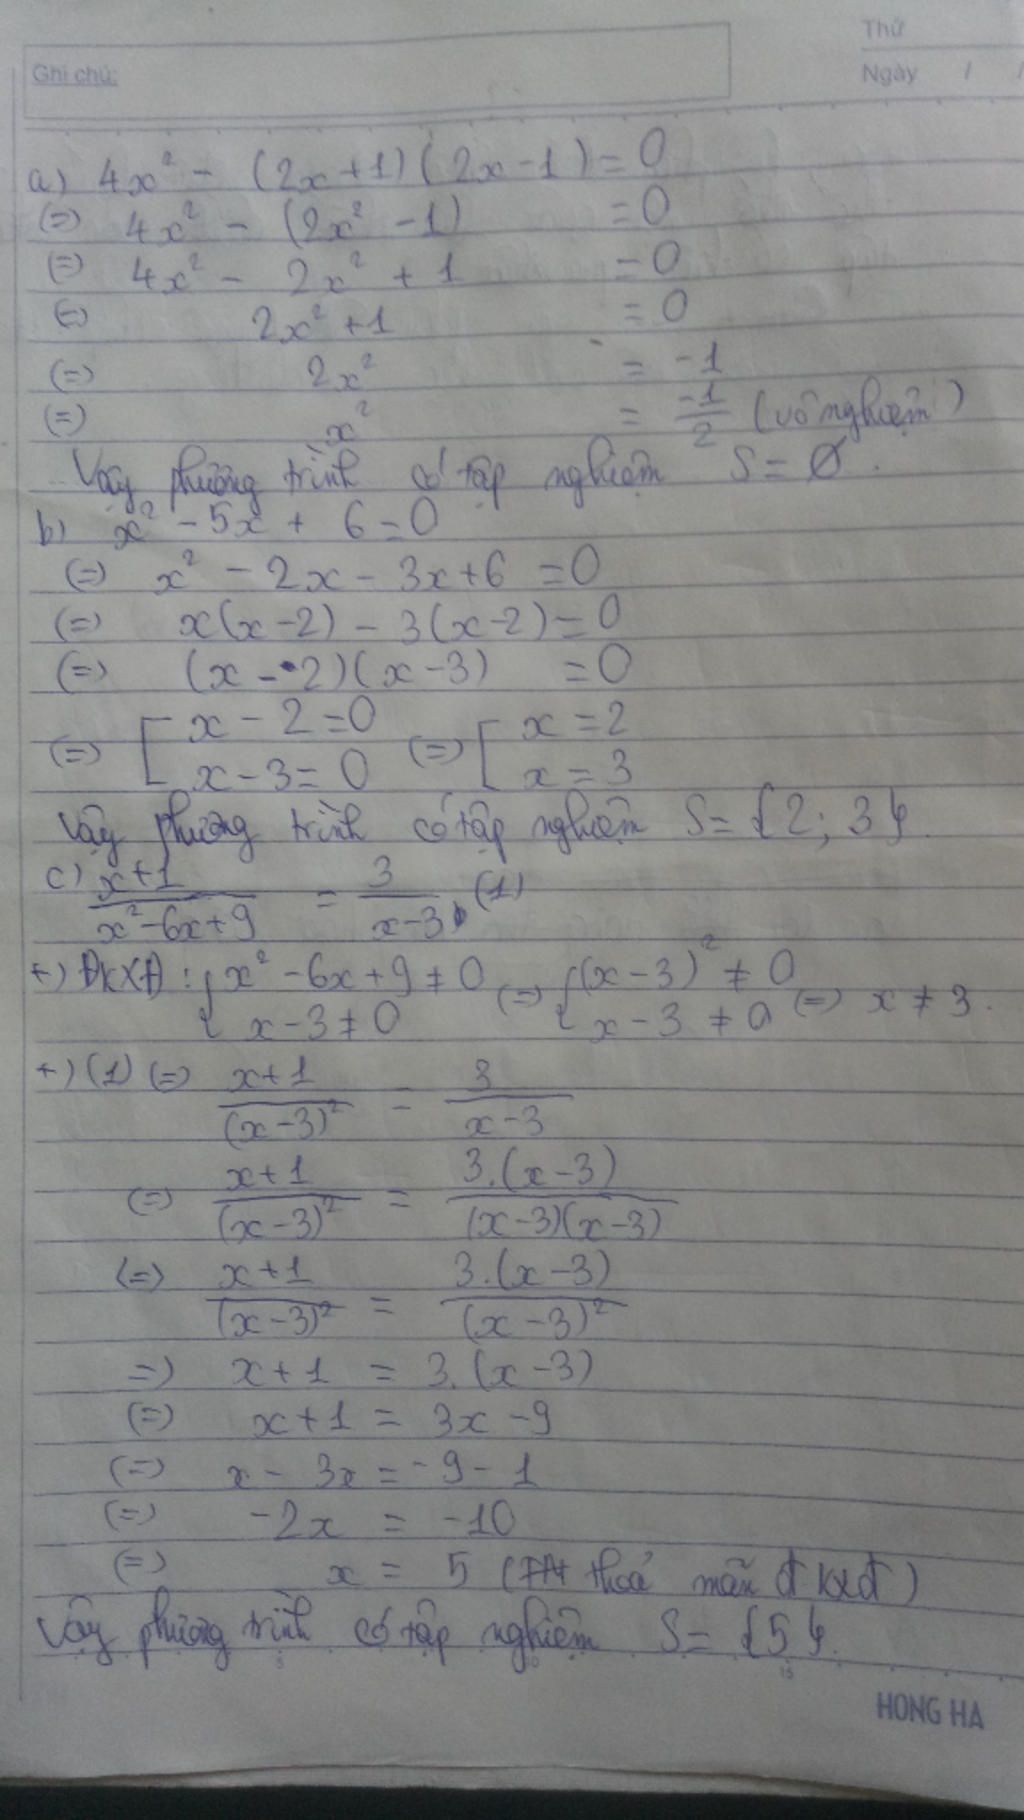 Thứ
Ghi chú:
Ngày / /
a) 4x² - (2x+1)(2x-1) = 0
(=) 4x² - (2x² - 1) = 0
(=) 4x² - 2x² + 1 = 0
(=) 2x² + 1 = 0
(=) 2x² = -1
(=) x² = -1/2 (vô nghiệm)
Vậy phương trình có tập nghiệm S = Ø.
b) x² - 5x + 6 = 0
(=) x² - 2x - 3x + 6 = 0
(=) x(x-2) - 3(x-2) = 0
(=) (x - 2)(x - 3) = 0
(=) [ x - 2 = 0 (=) [ x = 2
x - 3 = 0 x = 3
Vậy phương trình có tập nghiệm S = {2; 3}.
c) x+1 / x²-6x+9 = 3 / x-3 (1)
+) ĐKXĐ: { x² - 6x + 9 ≠ 0 (=) { (x-3)² ≠ 0
x - 3 ≠ 0 x - 3 ≠ 0 (=) x ≠ 3.
+) (1) (=) x+1 / (x-3)² = 3 / x-3
(=) x+1 / (x-3)² = 3.(x-3) / (x-3)(x-3)
(=) x+1 / (x-3)² = 3.(x-3) / (x-3)²
=) x+1 = 3.(x-3)
(=) x+1 = 3x - 9
(=) x - 3x = -9 - 1
(=) -2x = -10
(=) x = 5 (thoả mãn đkxđ)
Vậy phương trình có tập nghiệm S = {5}.
HONG HA